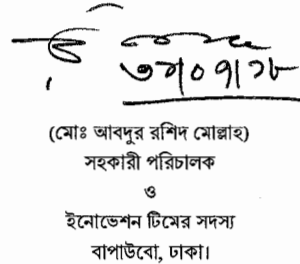 (মোঃ আবদুর রশিদ মোল্লাহ)
সহকারী পরিচালক
ও
ইনোভেশন টিমের সদস্য
বাপাউবো, ঢাকা।